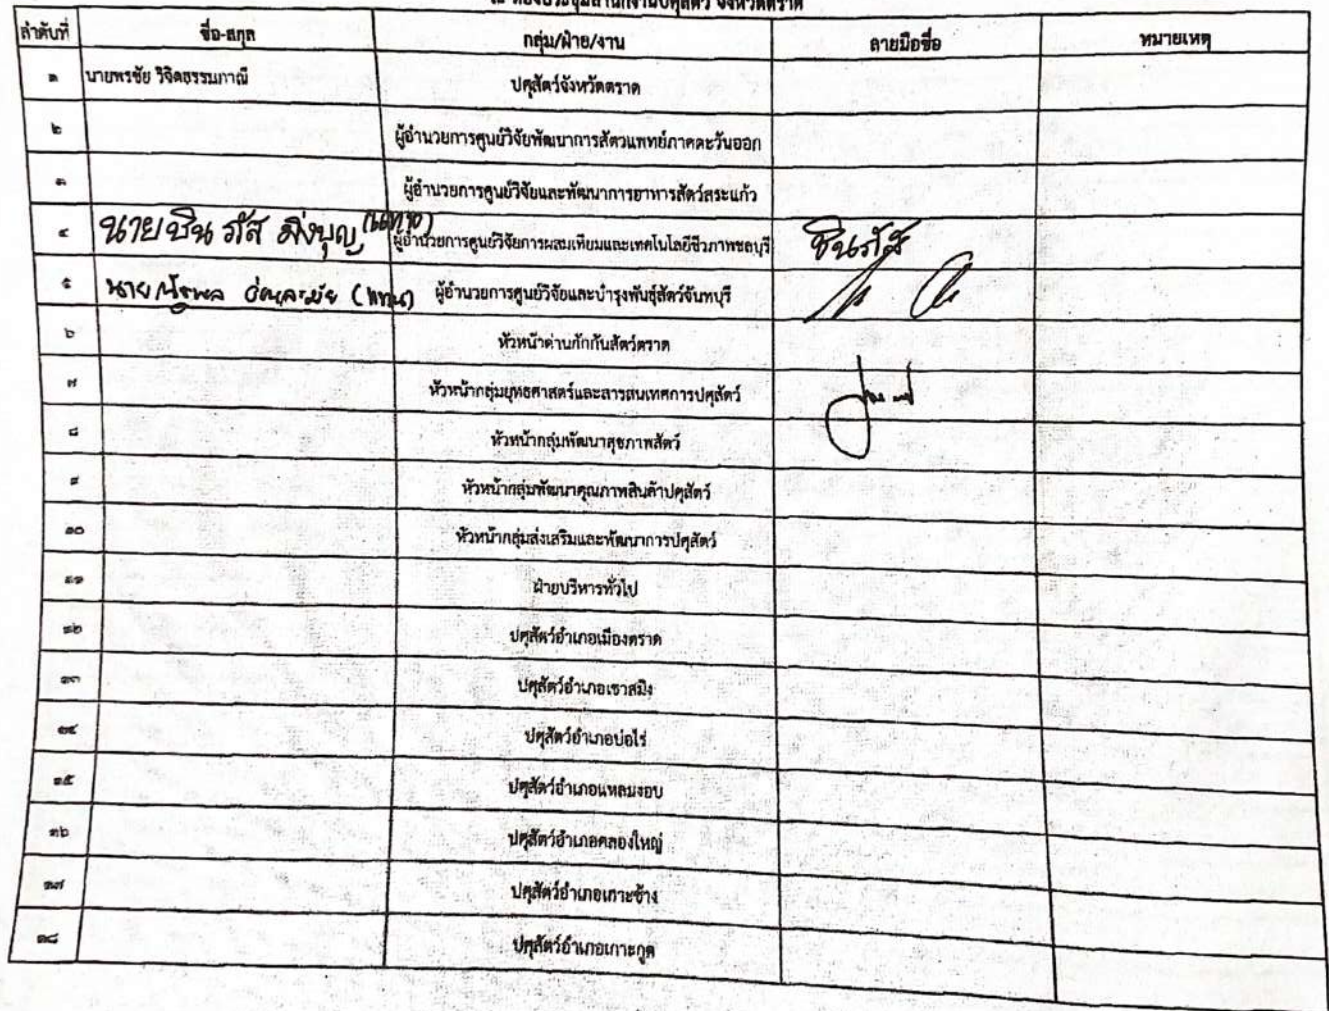 ณ ห้องประชุมสำนักงานปศุสัตว์ จังหวัดตราด
ลำดับที่ ชื่อ-สกุล กลุ่ม/ฝ่าย/งาน ลายมือชื่อ หมายเหตุ
๑ นายพรชัย วิจิตธรรมภาณี ปศุสัตว์จังหวัดตราด
๒ ผู้อำนวยการศูนย์วิจัยพัฒนาการสัตวแพทย์ภาคตะวันออก
๓ ผู้อำนวยการศูนย์วิจัยและพัฒนาการอาหารสัตว์สระแก้ว
๔ นายชินภัส มิ่งบุญ (แทน) ผู้อำนวยการศูนย์วิจัยการผสมเทียมและเทคโนโลยีชีวภาพชลบุรี ชินภัส
๕ นาย (แทน) ผู้อำนวยการศูนย์วิจัยและบำรุงพันธุ์สัตว์จันทบุรี
๖ หัวหน้าด่านกักกันสัตว์ตราด
๗ หัวหน้ากลุ่มยุทธศาสตร์และสารสนเทศการปศุสัตว์
๘ หัวหน้ากลุ่มพัฒนาสุขภาพสัตว์
๙ หัวหน้ากลุ่มพัฒนาคุณภาพสินค้าปศุสัตว์
๑๐ หัวหน้ากลุ่มส่งเสริมและพัฒนาการปศุสัตว์
๑๑ ฝ่ายบริหารทั่วไป
๑๒ ปศุสัตว์อำเภอเมืองตราด
๑๓ ปศุสัตว์อำเภอเขาสมิง
๑๔ ปศุสัตว์อำเภอบ่อไร่
๑๕ ปศุสัตว์อำเภอแหลมงอบ
๑๖ ปศุสัตว์อำเภอคลองใหญ่
๑๗ ปศุสัตว์อำเภอเกาะช้าง
๑๘ ปศุสัตว์อำเภอเกาะกูด